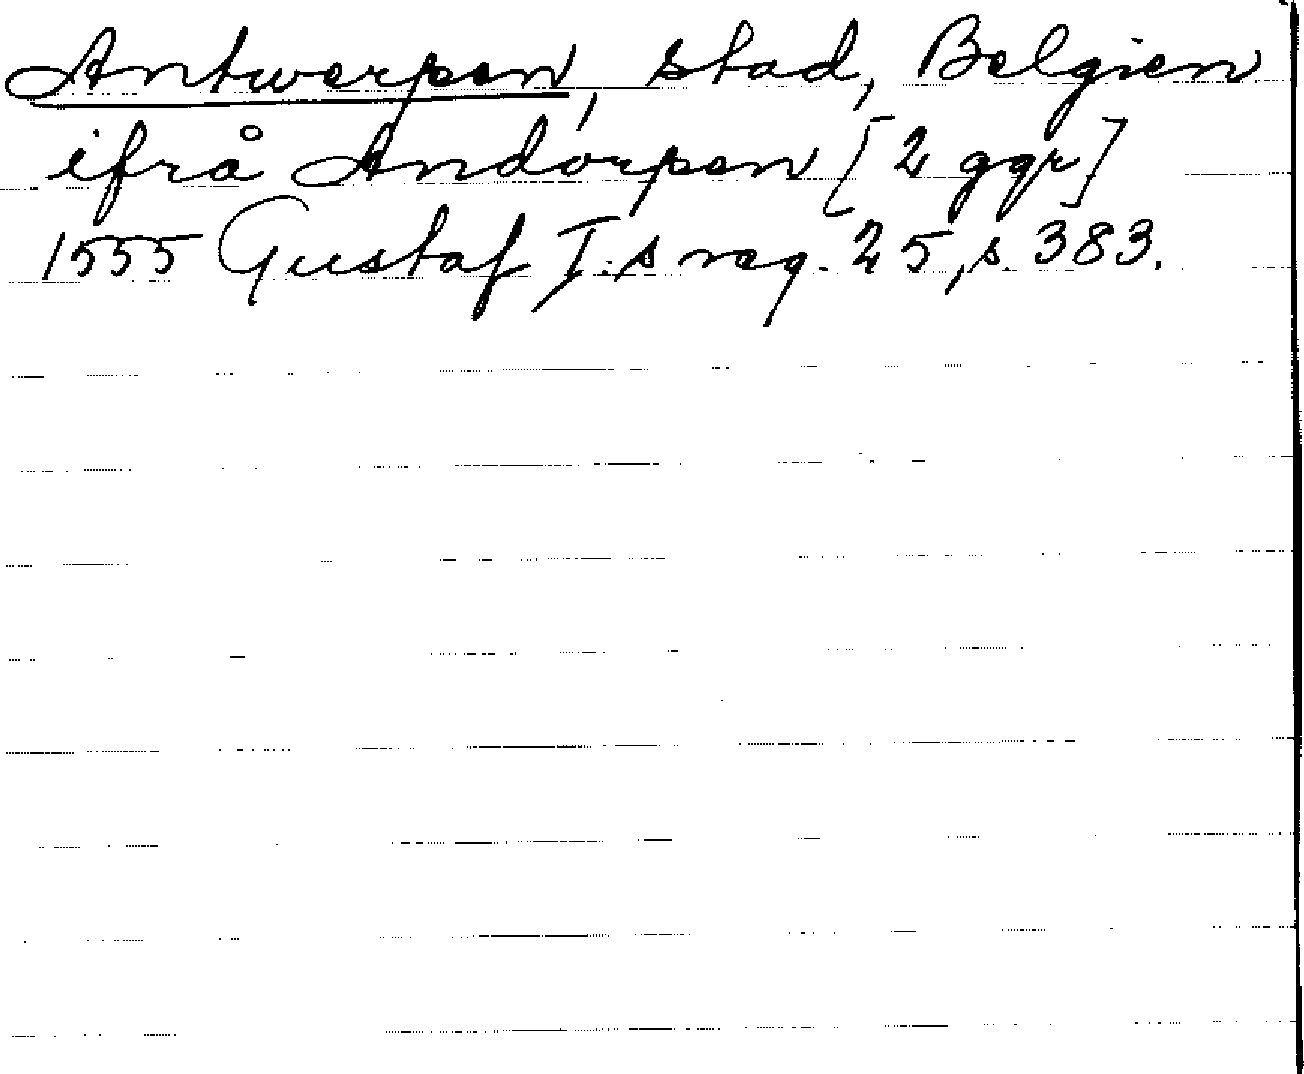 Antwerpen, stad, Belgien
ifrå Andorpen [2 ggr]
1555 Gustaf I:s reg. 25, s. 383.